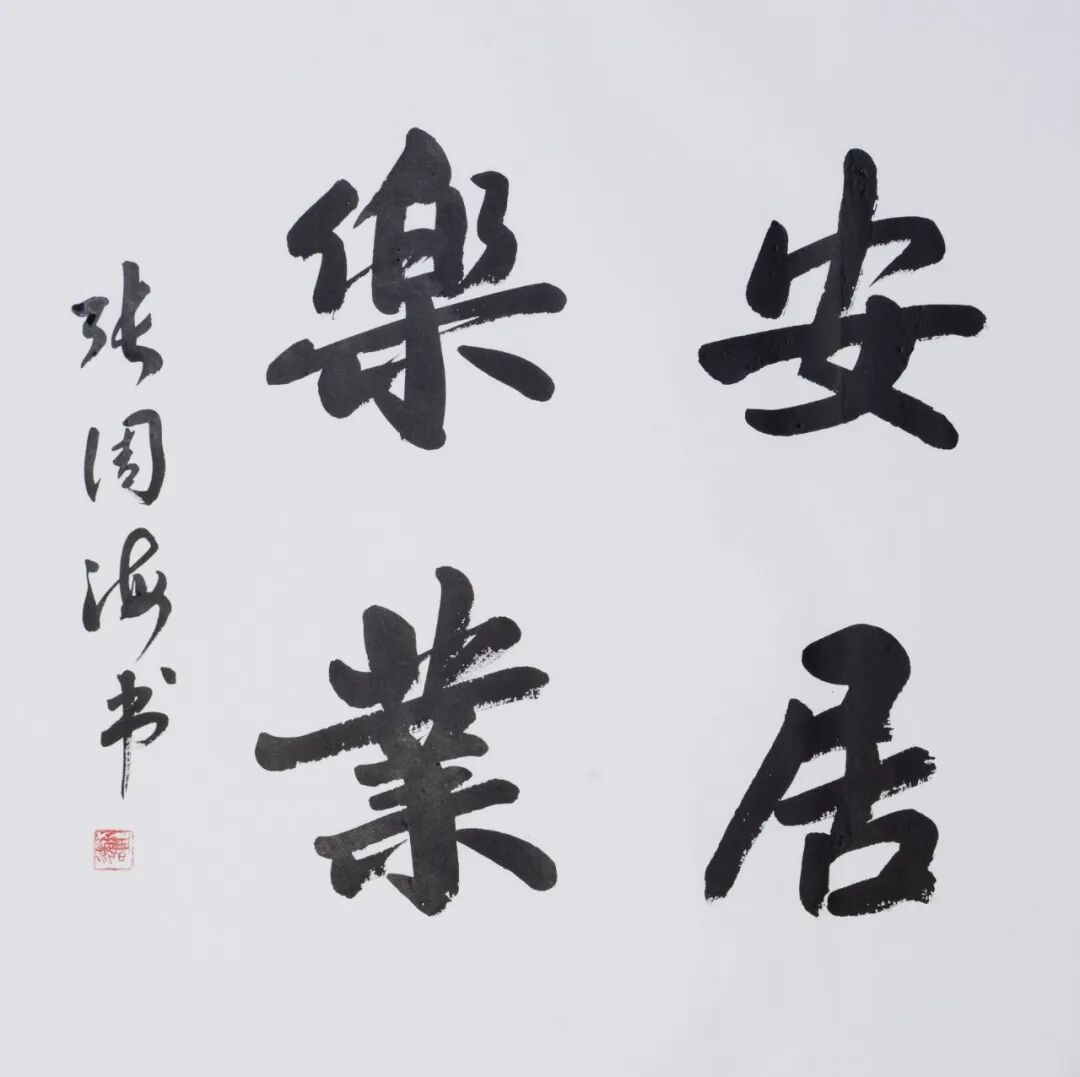 安居
樂業
张周海书